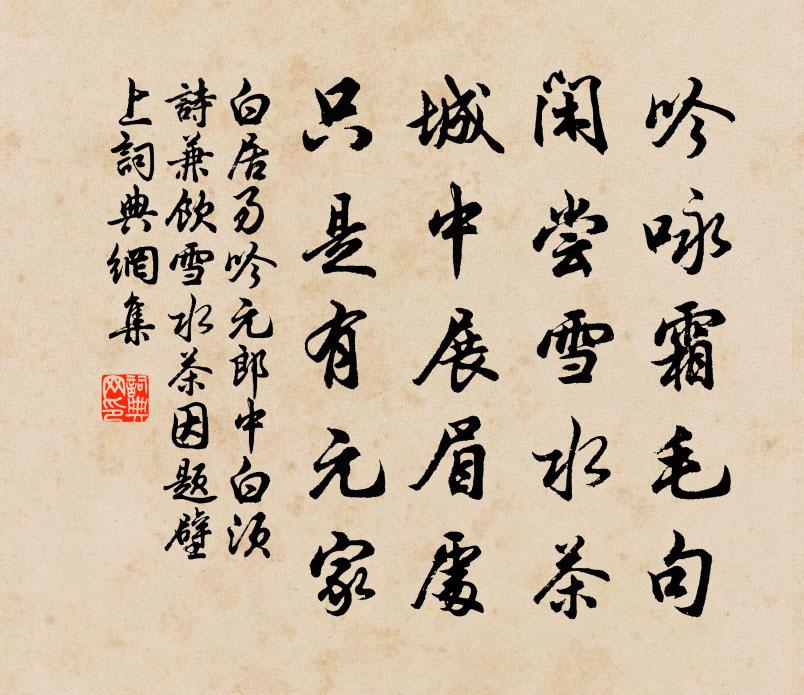 吟咏霜毛句
闲尝雪水茶
城中展眉处
只是有元家
白居易吟元郎中白须
詩兼飲雪水茶因题壁
上詞典網集
詞典网印